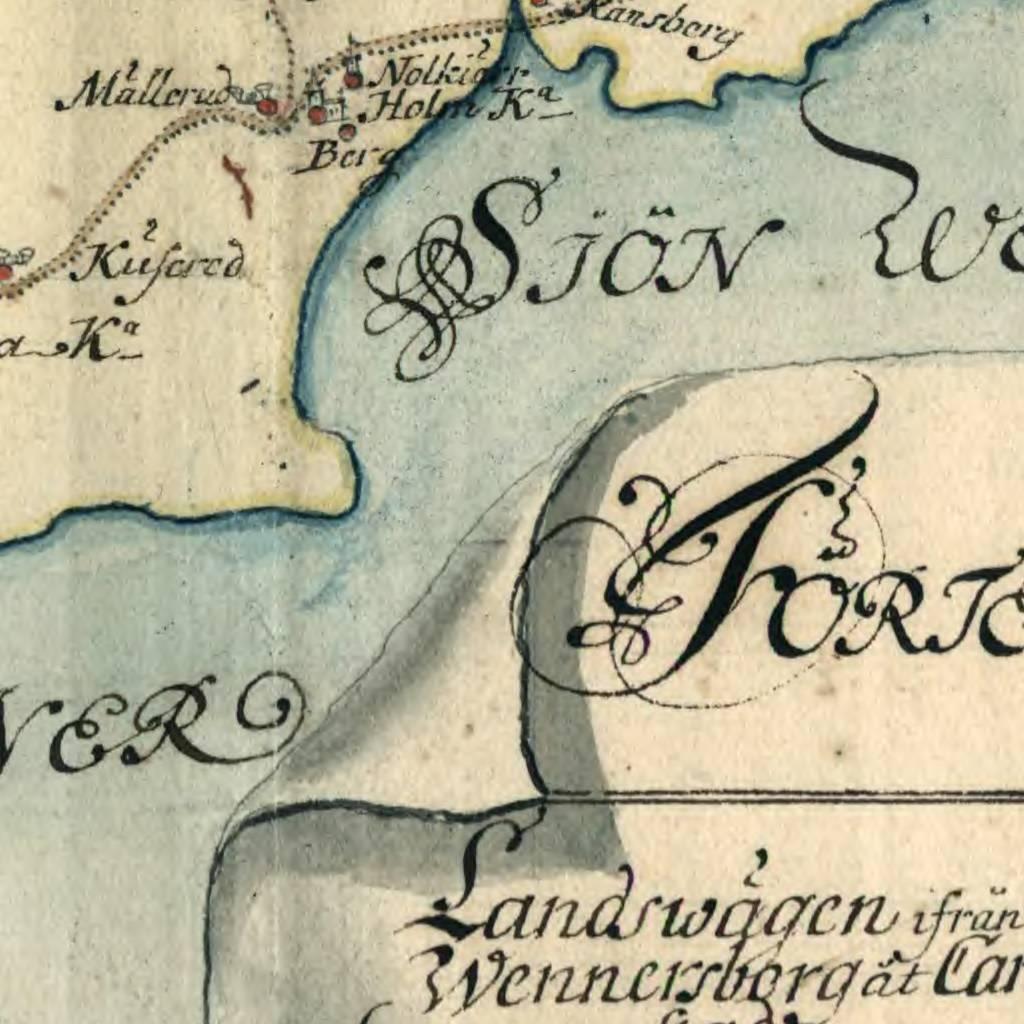 Ränsberg
Mällerud
Nolkiärr
Holm Kª
Berg
Kuserud
a Kª
SJÖN WE
NER
FÖRTE
Landswägen ifrån
Wennersborg åt Car